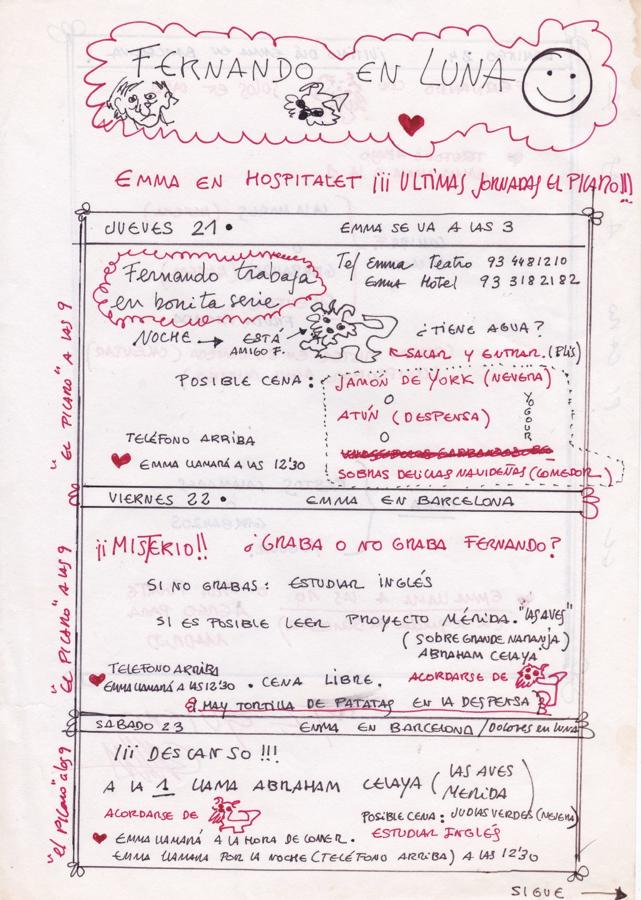 FERNANDO EN LUNA
EMMA EN HOSPITALET ¡¡¡ ULTIMAS JORNADAS EL PICARO!!!
JUEVES 21 • EMMA SE VA A LAS 3
Fernando trabaja
en bonita serie
Telf Emma Teatro 93 4481210
Emma Hotel 93 3182182
NOCHE → ESTÁ →
AMIGO F.
¿TIENE AGUA?
SACAR Y ENTRAR. (PLIS)
POSIBLE CENA:
JAMÓN DE YORK (NEVERA)
O
ATÚN (DESPENSA)
O
YOGOUR
SOBRAS DELICIAS NAVIDEÑAS (COMEDOR)
TELÉFONO ARRIBA
EMMA LLAMARÁ A LAS 12'30
"EL PICARO" A LAS 9
VIERNES 22 • EMMA EN BARCELONA
¡¡MISTERIO!! ¿GRABA O NO GRABA FERNANDO?
SI NO GRABAS: ESTUDIAR INGLÉS
SI ES POSIBLE LEER PROYECTO MÉRIDA. "LAS AVES"
(SOBRE GRANDE NARANJA)
ABRAHAM CELAYA
TELEFONO ARRIBA
EMMA LLAMARÁ A LAS 12'30 • CENA LIBRE. ACORDARSE DE
HAY TORTILLA DE PATATAS EN LA DESPENSA
"EL PICARO" A LAS 9
SABADO 23 EMMA EN BARCELONA / Dolores en luna
¡¡¡ DESCANSO !!!
A LA 1 LLAMA ABRAHAM CELAYA (LAS AVES
MERIDA)
ACORDARSE DE
POSIBLE CENA: JUDIAS VERDES (NEVERA)
EMMA LLAMARÁ A LA HORA DE COMER. ESTUDIAR INGLÉS
EMMA LLAMARA POR LA NOCHE (TELÉFONO ARRIBA) A LAS 12'30
"el Picaro" a las 9
SIGUE →